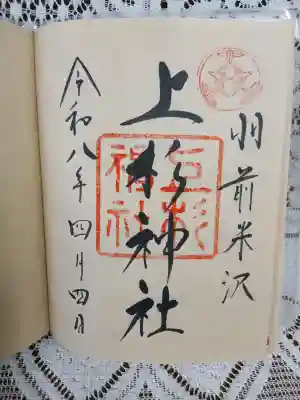 羽前米沢
上杉神社
令和八年四月四日